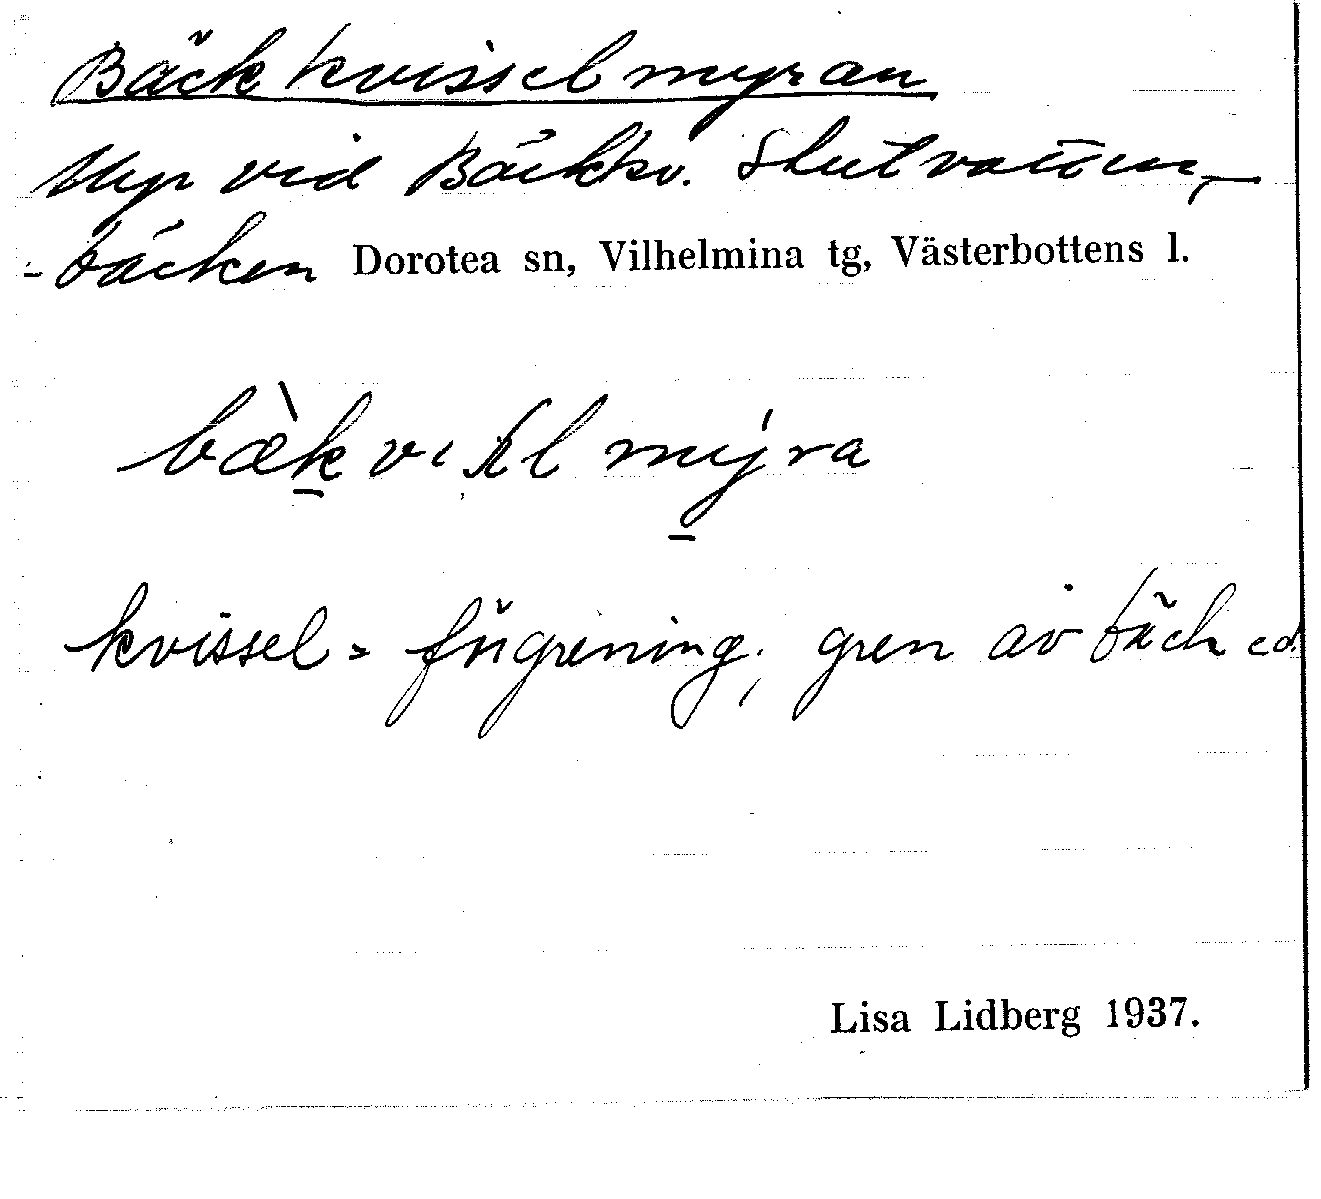 Bäckkvisselmyran
Myr vid Bäckkv. Slutvattun,-
-bäcken Dorotea sn, Vilhelmina tg, Västerbottens l.
myra
kvissel = förgrening, gren av bäck ed.
Lisa Lidberg 1937.